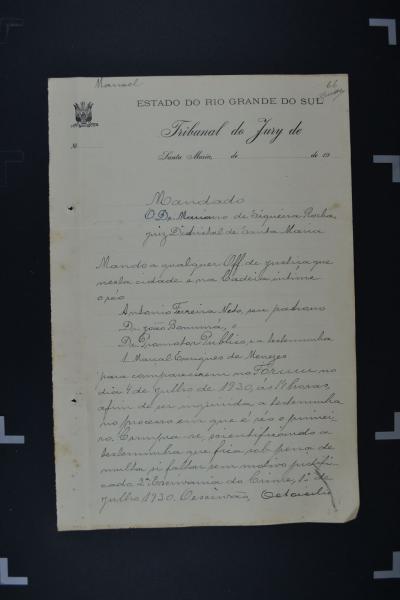 Manoel
66
ESTADO DO RIO GRANDE DO SUL
Tribunal do Jury de
Nº
Santa Maria, de de 19
Mandado
O Dr. Mariano de Siqueira Rocha,
juiz Districtal de Santa Maria
Mando a qualquer Off. de justiça que
nesta cidade e na Cadeia intime
o réo
Antonio Ferreira Neto, seu patrono
Dr. João Bonumá, e
Dr. Promotor Publico, e a testemunha
1 Marcal Enriques de Menezes
para comparecerem no Forum no
dia 4 de Julho de 1930, ás 14 horas,
afim de ser inquirida a testemunha
no processo em que é réo o primei-
ro. Cumpra-se, scientificando a
testemunha que fica sob pena de
multa si faltar sem motivo justifi-
cado 2ª Escrivania do Crime, 1º de
Julho 1930. O escrivão, Octacilio